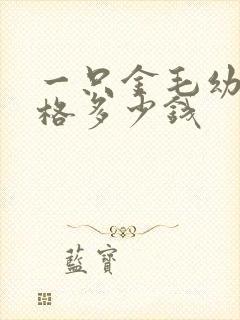 一只金毛幼
格多少钱
藍寶